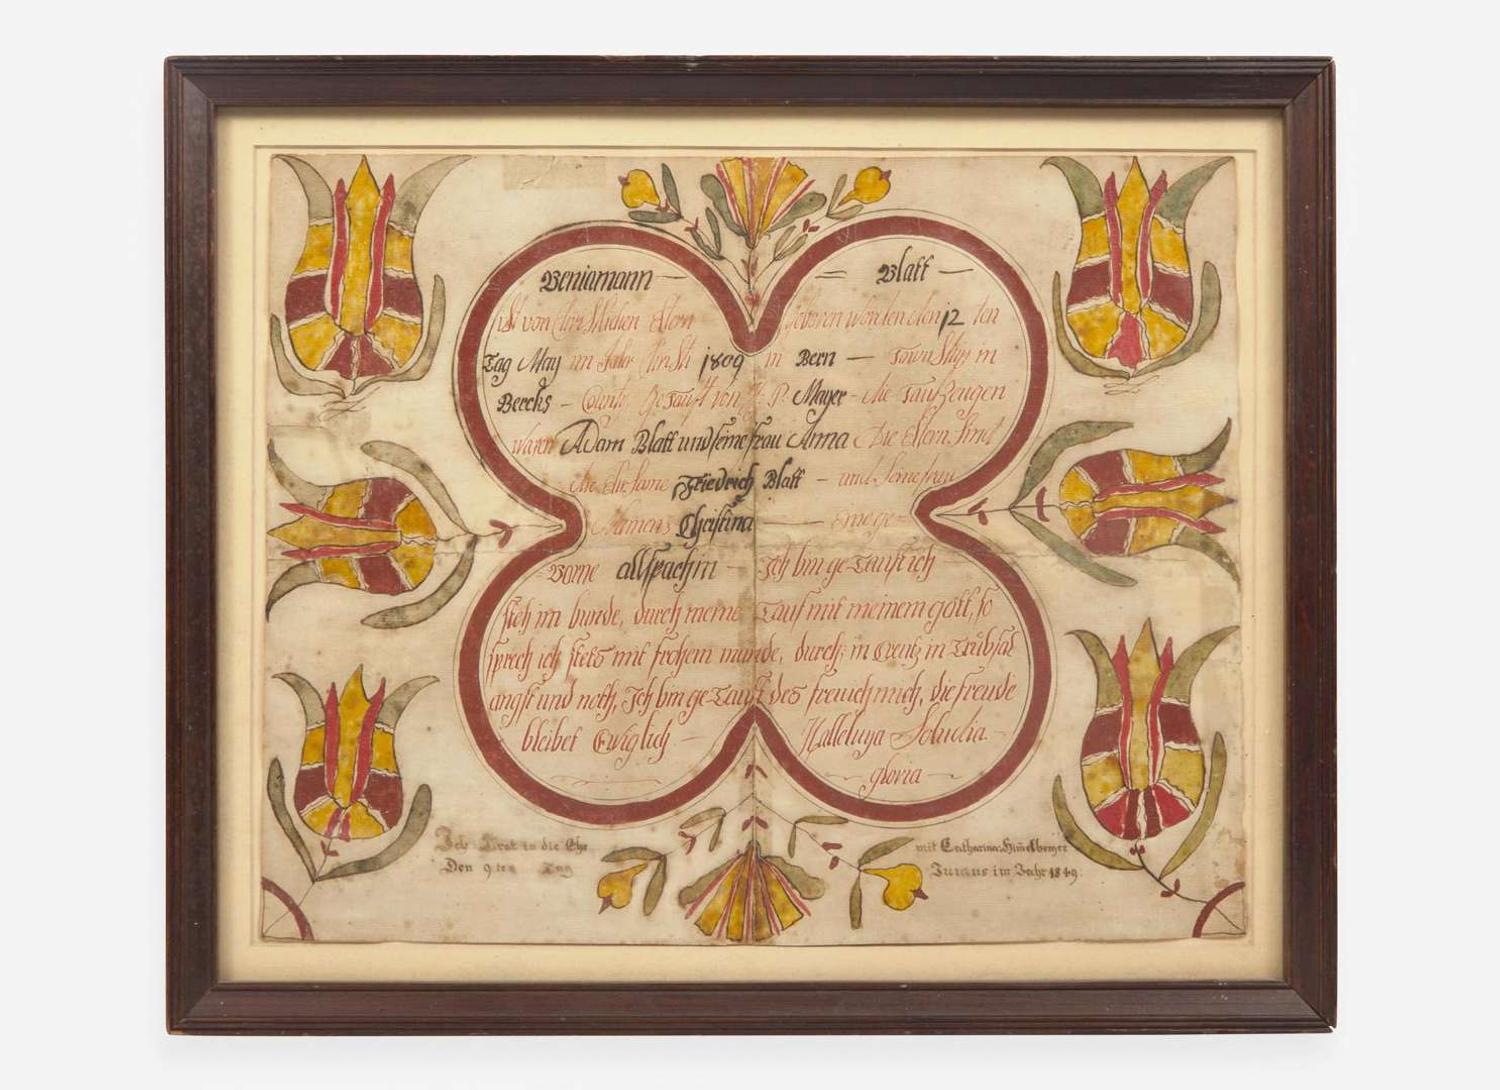 Beniamann — — Blatt —
ist von Christlichen Eltern geboren worden den 12 ten
Tag May im Jahr Christi 1809 in Bern — TownShip in
Bercks — County Getauft von H P Mayer — die Taufzeugen
waren Adam Blatt und seine frau Anna die Eltern Sind
die Ehrsame Friedrich Blatt — und Seine frau
Namens Christina —
Borne allspachin — Ich bin ge-Tauft ich
steh im bunde, durch meine Tauf mit meinem gott, so
sprech ich stets mit frohem munde, durch, in Creutz in Trübsal
angst und noth, Ich bin ge-Tauft des freu ich mich, die freude
bleibet Ewiglich — Halleluya
gloria —
Ich Trat in die Ehe mit Catharina Himelberger
Den 9ten Tag Junaus im Jahr 1849.